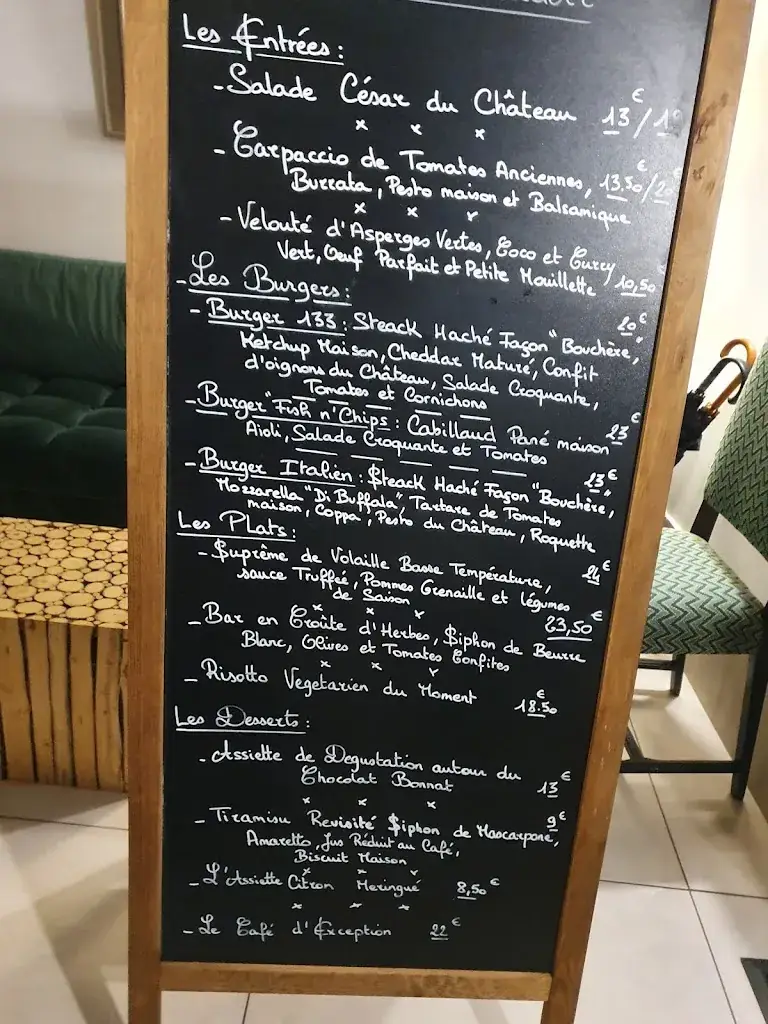 Les Entrées :
- Salade César du Château 13€/19
x x x
- Carpaccio de Tomates Anciennes, 13,50€/20
Burrata, Pesto maison et Balsamique
x x x
- Velouté d'Asperges Vertes, Coco et Curry
Vert, Oeuf Parfait et Petite Mouillette 10,50€
- Les Burgers :
- Burger 133 : Steack Haché Façon "Bouchère", 20€
Ketchup Maison, Cheddar Maturé, Confit
d'oignons du Château, Salade Croquante,
Tomates et Cornichons
- Burger "Fish n' Chips : Cabillaud Pané maison 23€
Aioli, Salade Croquante et Tomates
- Burger Italien : Steack Haché Façon "Bouchère", 23€
Mozzarella "Di Buffala", Tartare de Tomates
maison, Coppa, Pesto du Château, Roquette
Les Plats :
- Suprême de Volaille Basse Température, 24€
sauce Truffée, Pommes Grenaille et légumes
de Saison
x x x
- Bar en Croûte d'Herbes, Siphon de Beurre 23,50€
Blanc, Olives et Tomates Confites
x x x
- Risotto Vegetarien du Moment 18.50€
Les Desserts :
- Assiette de Degustation autour du
Chocolat Bonnat 13€
x x x
- Tiramisu Revisité Siphon de Mascarpone, 9€
Amaretto, Jus Réduit au Café,
Biscuit Maison
x x x
- L'Assiette Citron Meringué 8,50€
x x x
- Le Café d'Exception 22€